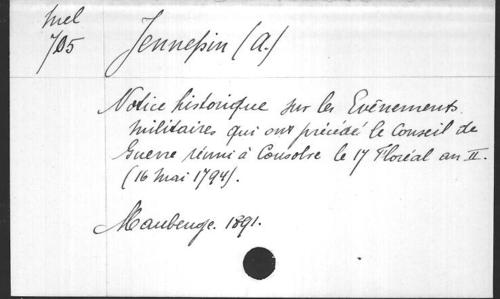 Mel
705
Jennepin (A.)
Notice historique sur les Evénements
militaires qui ont précédé le Conseil de
Guerre réuni à Cousolre le 17 Floréal an II.
(16 Mai 1794).
Maubeuge. 1891.